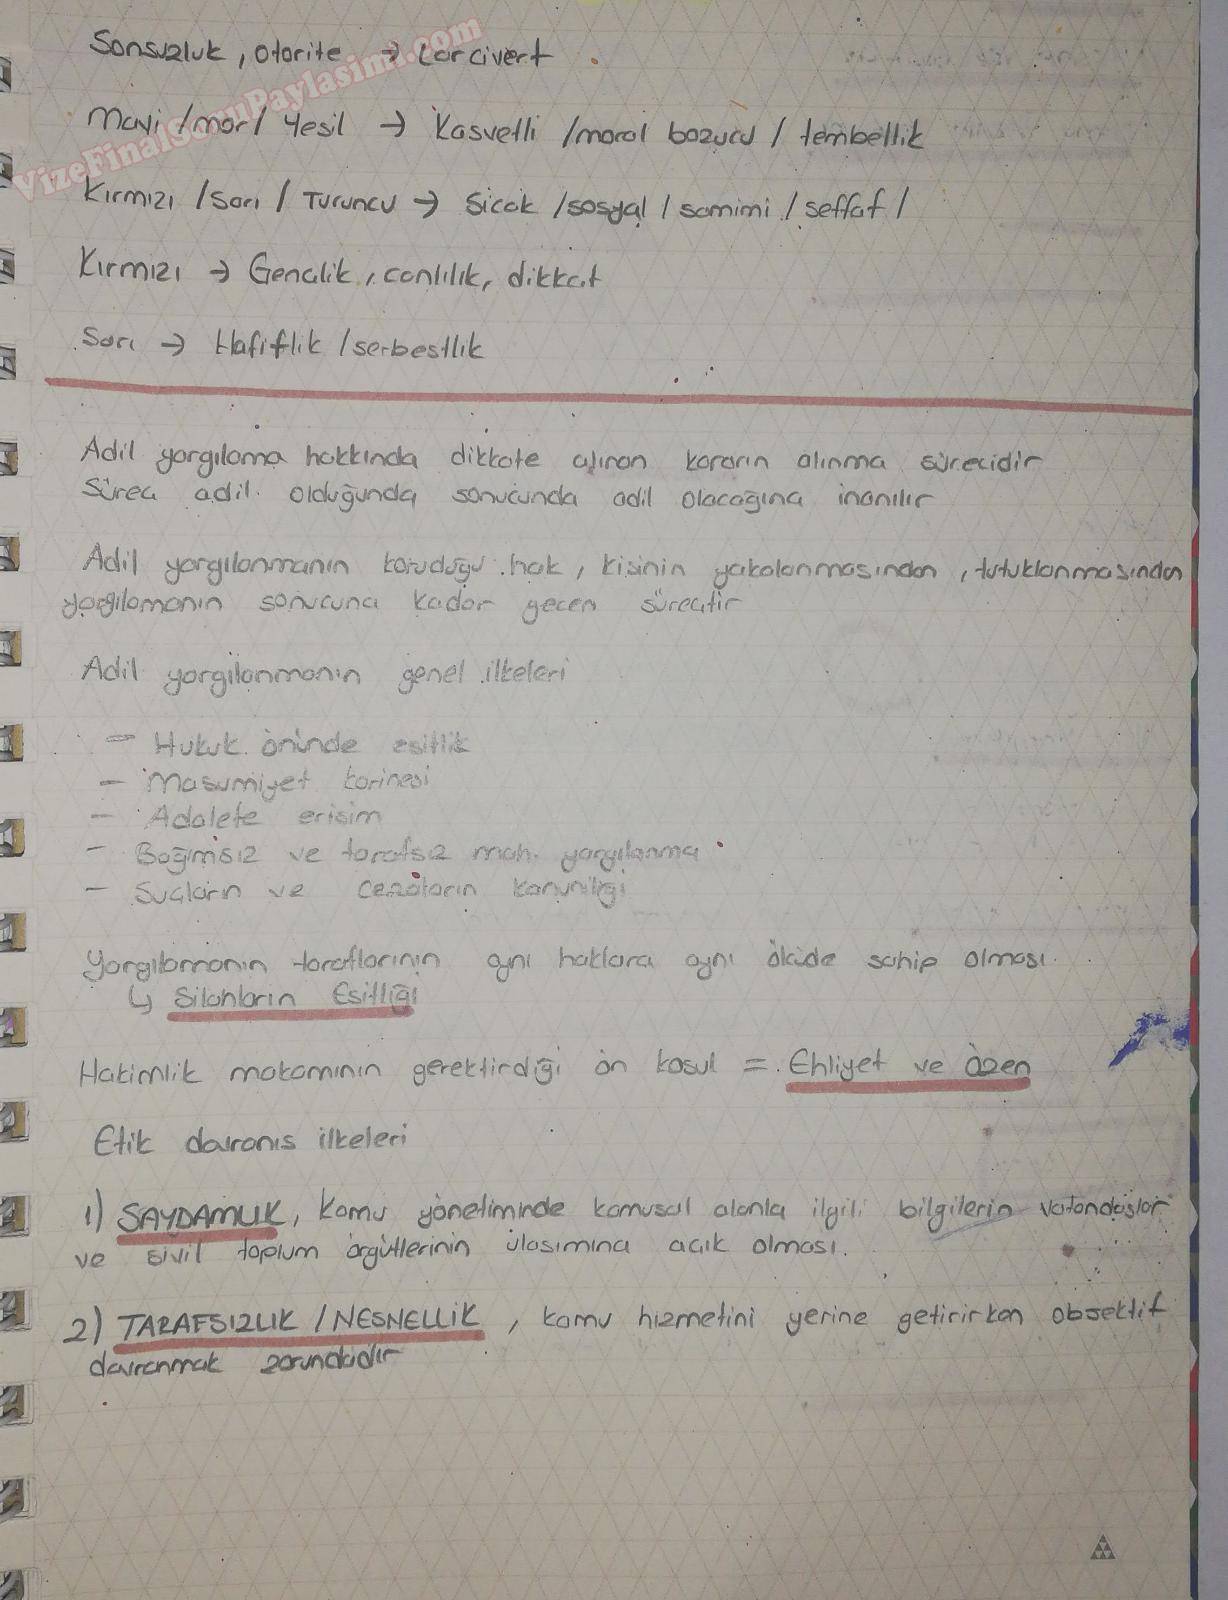 Sonsuzluk, otorite → Lacivert
VizeFinalSoruPaylasimi.com
Mavi / mor / Yesil → Kasvetli / moral bozucu / tembellik
Kırmızı / Sarı / Turuncu → Sicak / sosyal / samimi / seffaf /
Kırmızı → Genclik, canlılık, dikkat
Sarı → Hafiflik / serbestlik
Adil yargılama hakkında dikkate alınan kararın alınma sürecidir
Sürec adil olduğunda sonucunda adil olacağına inanılır
Adil yargılanmanın koruduğu hak, kisinin yakalanmasından, tutuklanmasından
yargılamanın sonucuna kadar gecen sürectir
Adil yargılanmanın genel ilkeleri
– Hukuk önünde esitlik
– Masumiyet karinesi
– Adalete erisim
– Bağımsız ve tarafsız mah. yargılanma
– Sucların ve cezaların kanuniliği
Yargılamanın taraflarının aynı haklara aynı ölcüde sahip olması.
↳ Silahların Esitliği
Hakimlik makamının gerektirdiği ön kosul = Ehliyet ve özen
Etik davranıs ilkeleri
1) SAYDAMLIK, Kamu yönetiminde kamusal alanla ilgili bilgilerin vatandaşlar
ve sivil toplum örgütlerinin ulasımına acık olması.
2) TARAFSIZLIK / NESNELLİK, kamu hizmetini yerine getirirken objektif
davranmak zorundadır